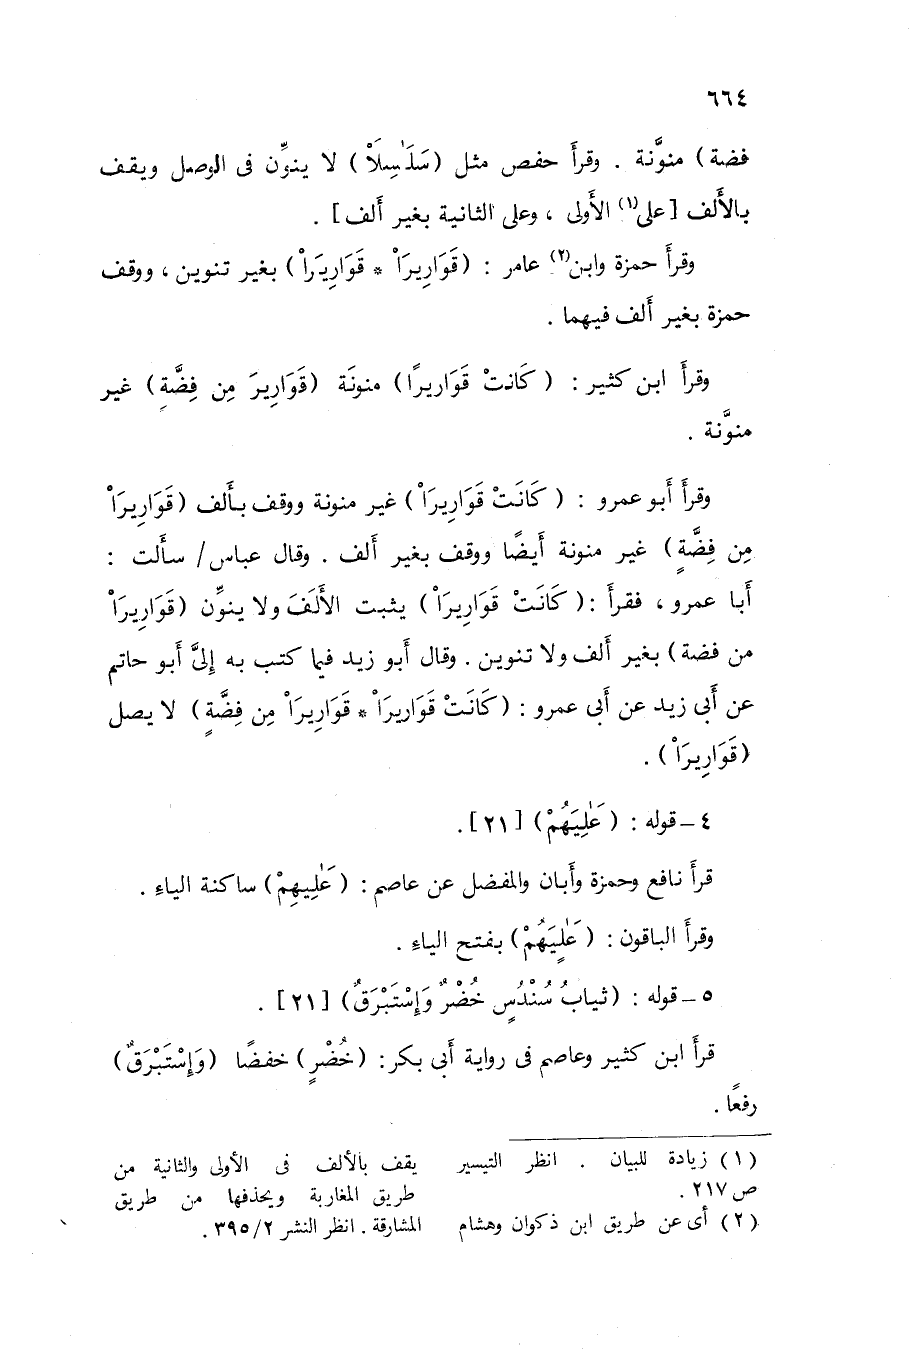 ٦٦٤
فضة) منوَّنة . وقرأَ حفص مثل (سَلَٰسِلَاْ) لا ينوِّن فى الوصل ويقف
بالأَلف [على(١) الأُولى ، وعلى الثانية بغير أَلف] .
وقرأَ حمزة وابن(٢) عامر : (قَوَارِيرَاْ * قَوَارِيرَاْ) بغير تنوين ، ووقف
حمزة بغير أَلف فيهما .
وقرأَ ابن كثير : (كَانتْ قَوَاريرًا) منونَة (قَوَارِيرَ مِن فِضَّةٍ) غير
منوَّنة .
وقرأَ أَبو عمرو : (كَانَتْ قَوَارِيرَاْ) غير منونة ووقف بأَلف (قَوَارِيرَاْ
مِن فِضَّةٍ) غير منونة أَيضًا ووقف بغير أَلف . وقال عباس / سأَلت :
أَبا عمرو ، فقرأَ :(كَانَتْ قَوَارِيرَاْ) يثبت الأَلفَ ولا ينوِّن (قَوَارِيرَاْ
من فضة) بغير أَلف ولا تنوين . وقال أَبو زيد فيما كتب به إِلىَّ أَبو حاتم
عن أَبى زيد عن أَبى عمرو : (كَانَتْ قَوَاريرَاْ * قَوَارِيرَاْ مِن فِضَّةٍ) لا يصل
(قَوَارِيرَاْ) .
٤ – قوله : (عَٰلِيَهُمْ) [٢١] .
قرأَ نافع وحمزة وأَبان والمفضل عن عاصم : (عَٰلِيهِمْ) ساكنة الياءِ .
وقرأَ الباقون : (عَٰلِيَهُمْ) بفتح الياءِ .
٥ – قوله : (ثيابُ سُنْدُسٍ خُضْرٌ وَإِسْتَبْرَقٌ) [٢١] .
قرأَ ابن كثير وعاصم فى رواية أَبى بكر : (خُضْرٍ) خفضًا (وَإِسْتَبْرَقٌ)
رفعًا .
(١) زيادة للبيان . انظر التيسير
ص ٢١٧ .
(٢) أى عن طريق ابن ذكوان وهشام
يقف بالألف فى الأولى والثانية من
طريق المغاربة ويحذفها من طريق
المشارقة . انظر النشر ٣٩٥/٢ .